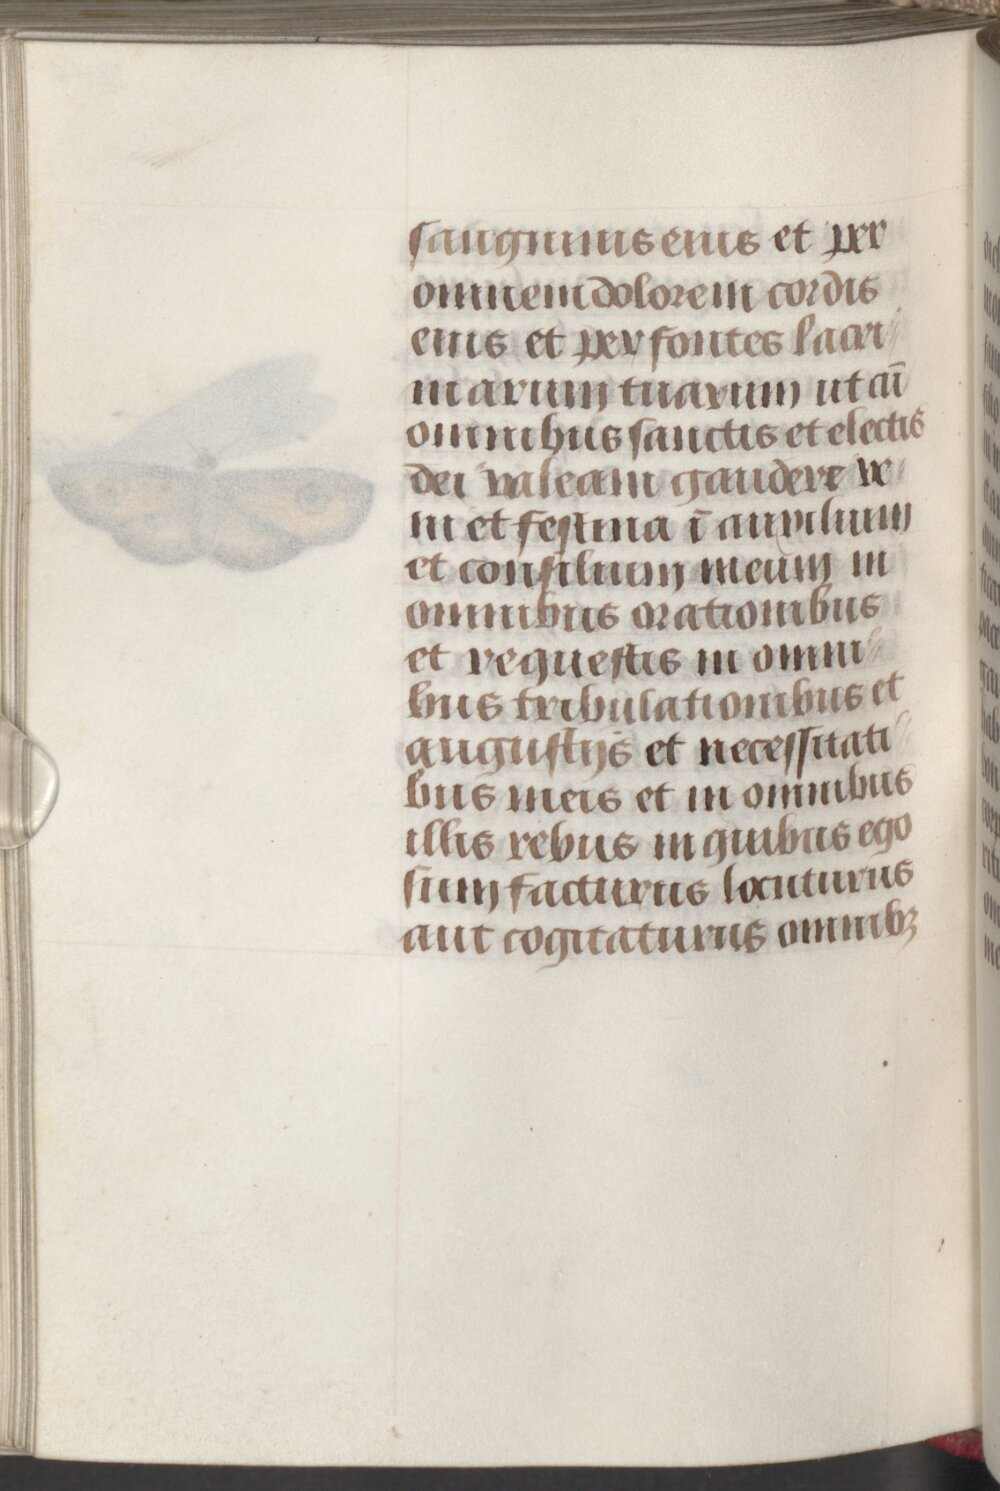 sanguinis eius et per
omnem dolorem cordis
eius et per fontes lacri
marum tuarum ut cū
omnibus sanctis et electis
dei valeam gaudere ve
ni et festina ī auxilium
et consilium meum in
omnibus orationibus
et requestis in omni
bus tribulationibus et
angustijs et necessitati
bus meis et in omnibus
illis rebus in quibus ego
sum facturus locuturus
aut cogitaturus omnibꝫ